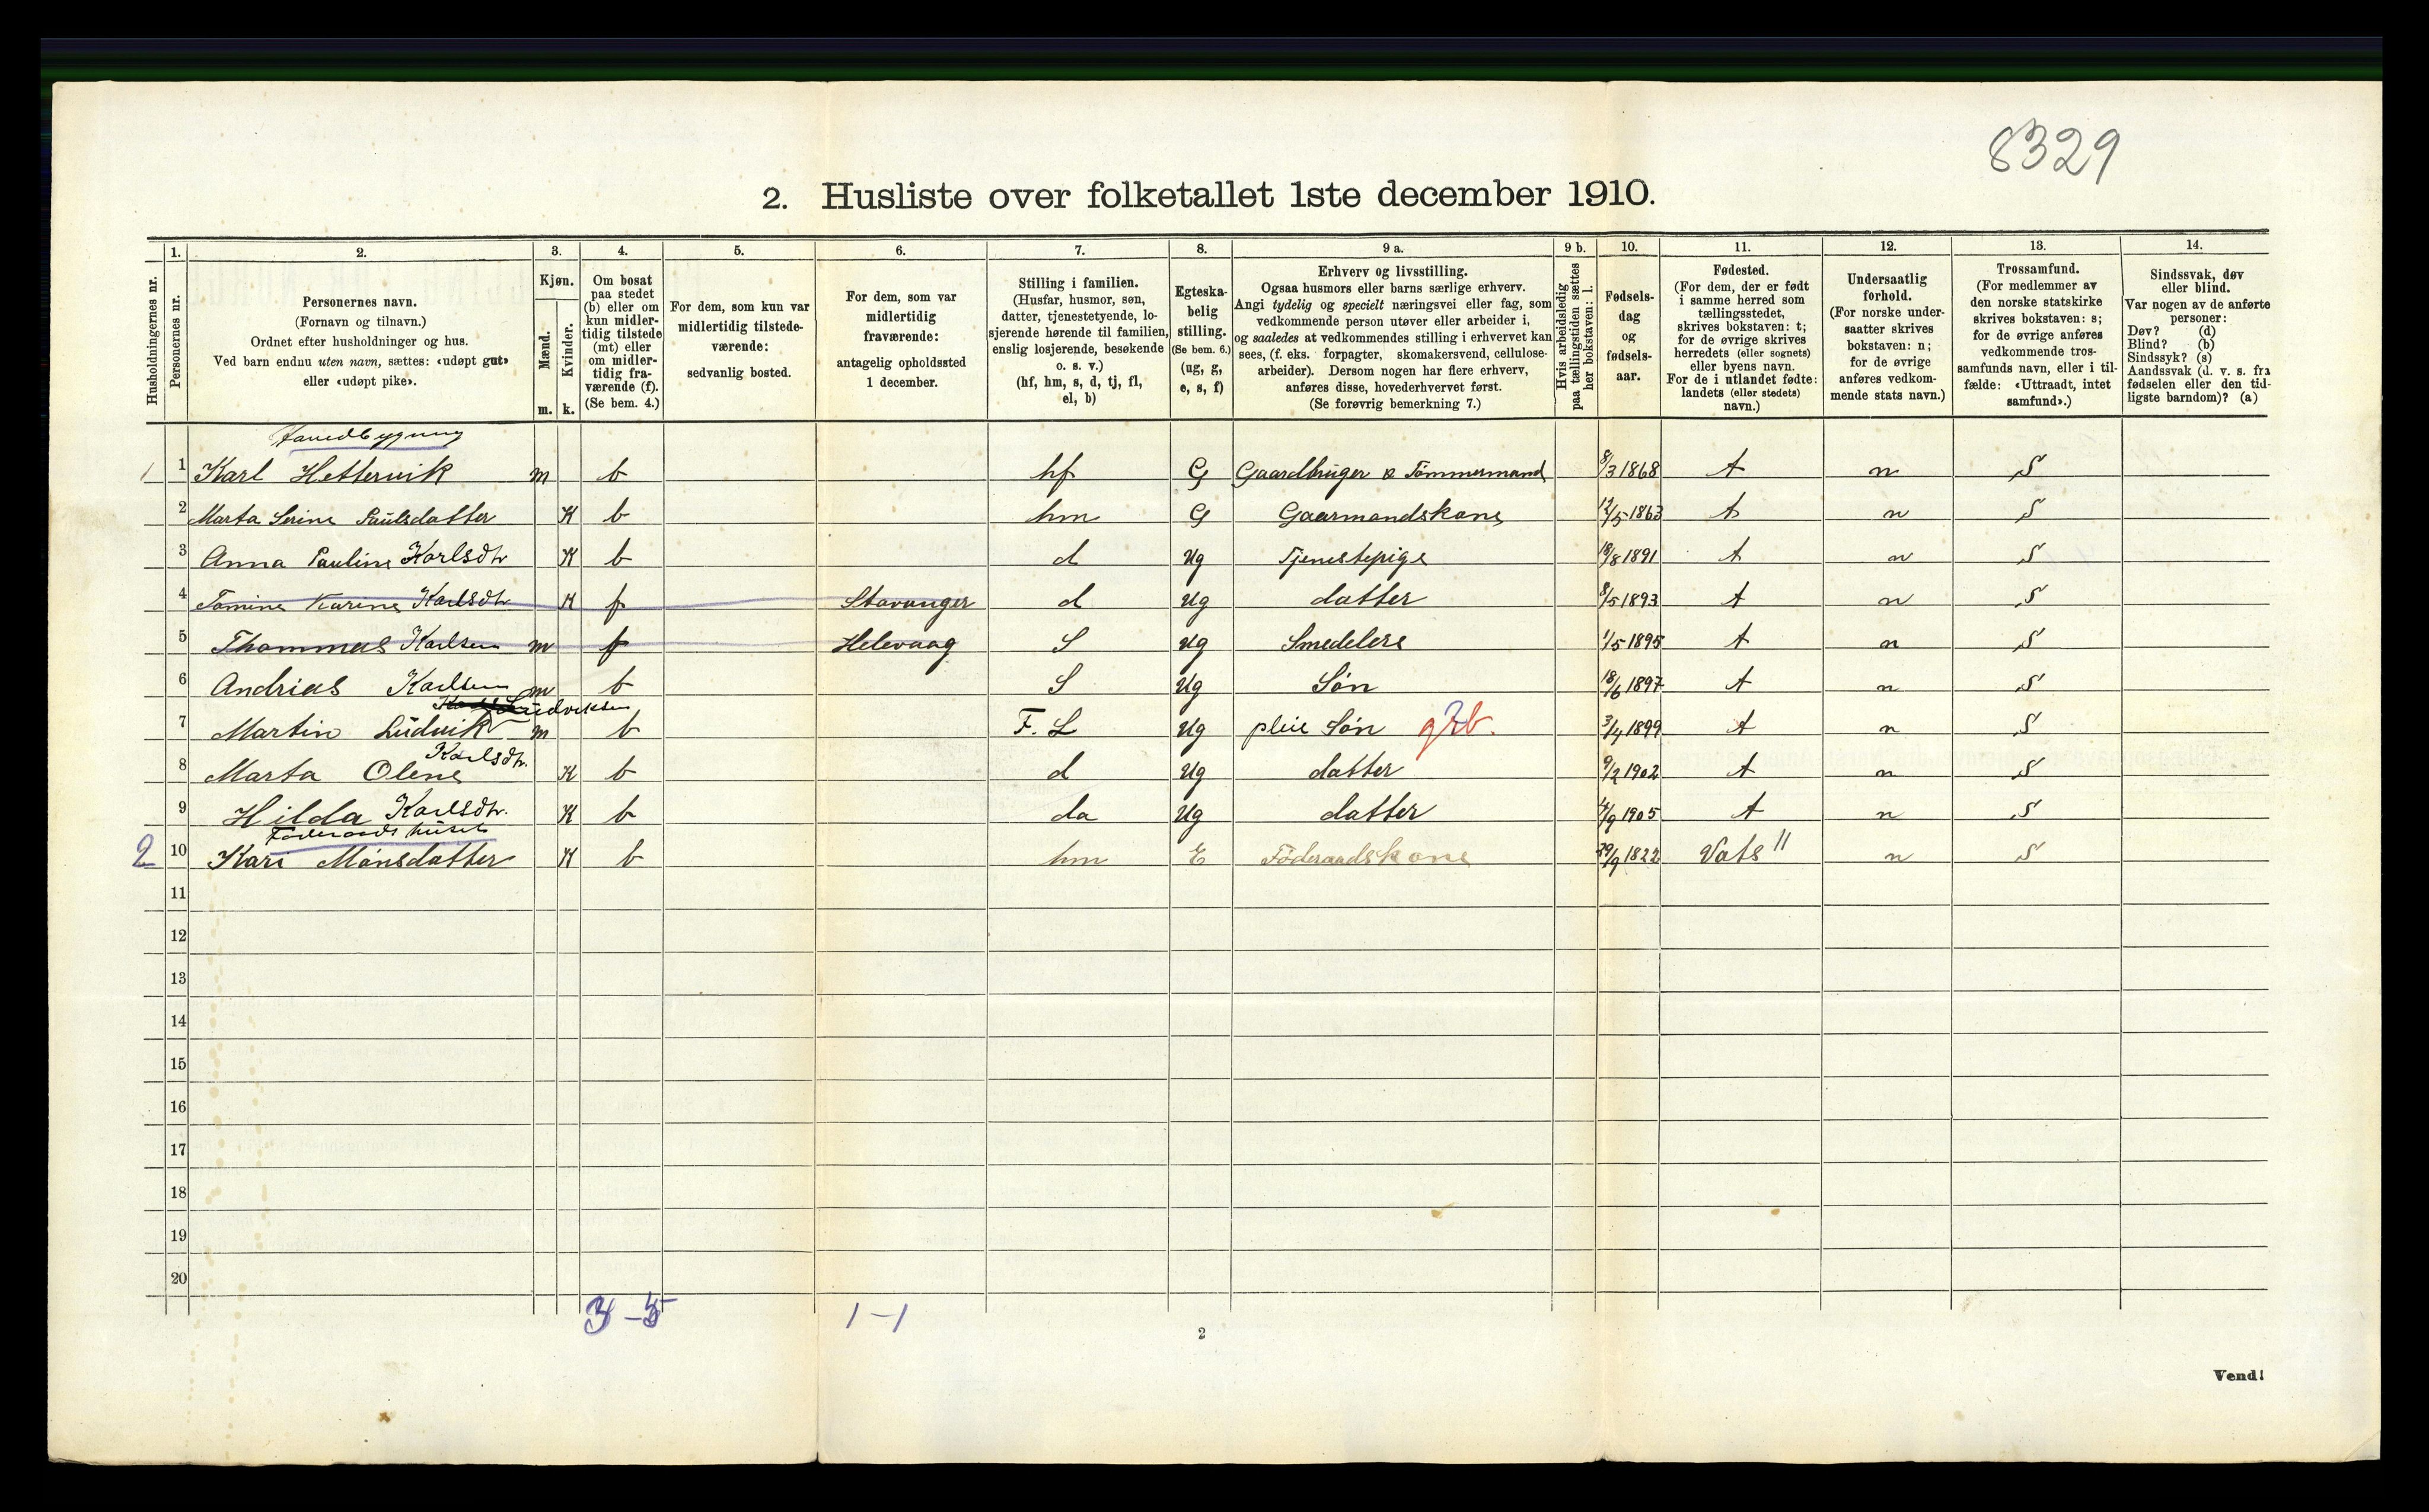 8329
2. Husliste over folketallet 1ste december 1910.
Husholdningernes nr.
1.
Personernes nr.
2.
Personernes navn.
(Fornavn og tilnavn.)
Ordnet efter husholdninger og hus.
Ved barn endnu uten navn, sættes: «udøpt gut»
eller «udøpt pike».
3.
Kjøn.
Mænd.
Kvinder.
m. k.
4.
Om bosat
paa stedet
(b) eller om
kun midler-
tidig tilstede
(mt) eller
om midler-
tidig fra-
værende (f).
(Se bem. 4.)
5.
For dem, som kun var
midlertidig tilstede-
værende:
sedvanlig bosted.
6.
For dem, som var
midlertidig
fraværende:
antagelig opholdssted
1 december.
7.
Stilling i familien.
(Husfar, husmor, søn,
datter, tjenestetyende, lo-
sjerende hørende til familien,
enslig losjerende, besøkende
o. s. v.)
(hf, hm, s, d, tj, fl,
el, b)
8.
Egteska-
belig
stilling.
(Se bem. 6.)
(ug, g,
e, s, f)
9 a.
Erhverv og livsstilling.
Ogsaa husmors eller barns særlige erhverv.
Angi tydelig og specielt næringsvei eller fag, som
vedkommende person utøver eller arbeider i,
og saaledes at vedkommendes stilling i erhvervet kan
sees, (f. eks. forpagter, skomakersvend, cellulose-
arbeider). Dersom nogen har flere erhverv,
anføres disse, hovederhvervet først.
(Se forøvrig bemerkning 7.)
9 b.
Hvis arbeidsledig
paa tællingstiden sættes
her bokstaven: l.
10.
Fødsels-
dag
og
fødsels-
aar.
11.
Fødested.
(For dem, der er født
i samme herred som
tællingsstedet,
skrives bokstaven: t;
for de øvrige skrives
herredets (eller sognets)
eller byens navn.
For de i utlandet fødte:
landets (eller stedets)
navn.)
12.
Undersaatlig
forhold.
(For norske under-
saatter skrives
bokstaven: n;
for de øvrige
anføres vedkom-
mende stats navn.)
13.
Trossamfund.
(For medlemmer av
den norske statskirke
skrives bokstaven: s;
for de øvrige anføres
vedkommende tros-
samfunds navn, eller i til-
fælde: «Uttraadt, intet
samfund».)
14.
Sindssvak, døv
eller blind.
Var nogen av de anførte
personer:
Døv? (d)
Blind? (b)
Sindssyk? (s)
Aandssvak (d. v. s. fra
fødselen eller den tid-
ligste barndom)? (a)
1 1 Karl Hettervik m b hf G Gaardbruger & Tömmermand 8/3 1868 t n S
2 Marta Serine Paulsdatter K b hm G Gaarmandskone 12/5 1863 t n S
3 Anna Pauline Karlsdtr K b d Ug Tjenestepige 18/8 1891 t n S
4 Tomine Karine Karlsdtr K f Stavanger d Ug datter 8/5 1893 t n S
5 Thommas Karlsen m f Helevaag S Ug Smedelere 1/5 1895 t n S
6 Andrias Karlsen m b S Ug Sön 18/6 1897 t n S
Ludviksen
7 Martin Ludvik m b F. L Ug pleie Sön 3/4 1899 t n S
Karlsdtr.
8 Marta Olene K b d Ug datter 9/2 1902 t n S
9 Hilda Karlsdtr. K b da Ug datter 4/9 1905 t n S
Föderaads huset
2 10 Kari Månsdatter K b hm E Föderaadskone 29/9 1822 Vats 11 n S
11
12
13
14
15
16
17
18
19
20
3-5 1-1
2
Vend!